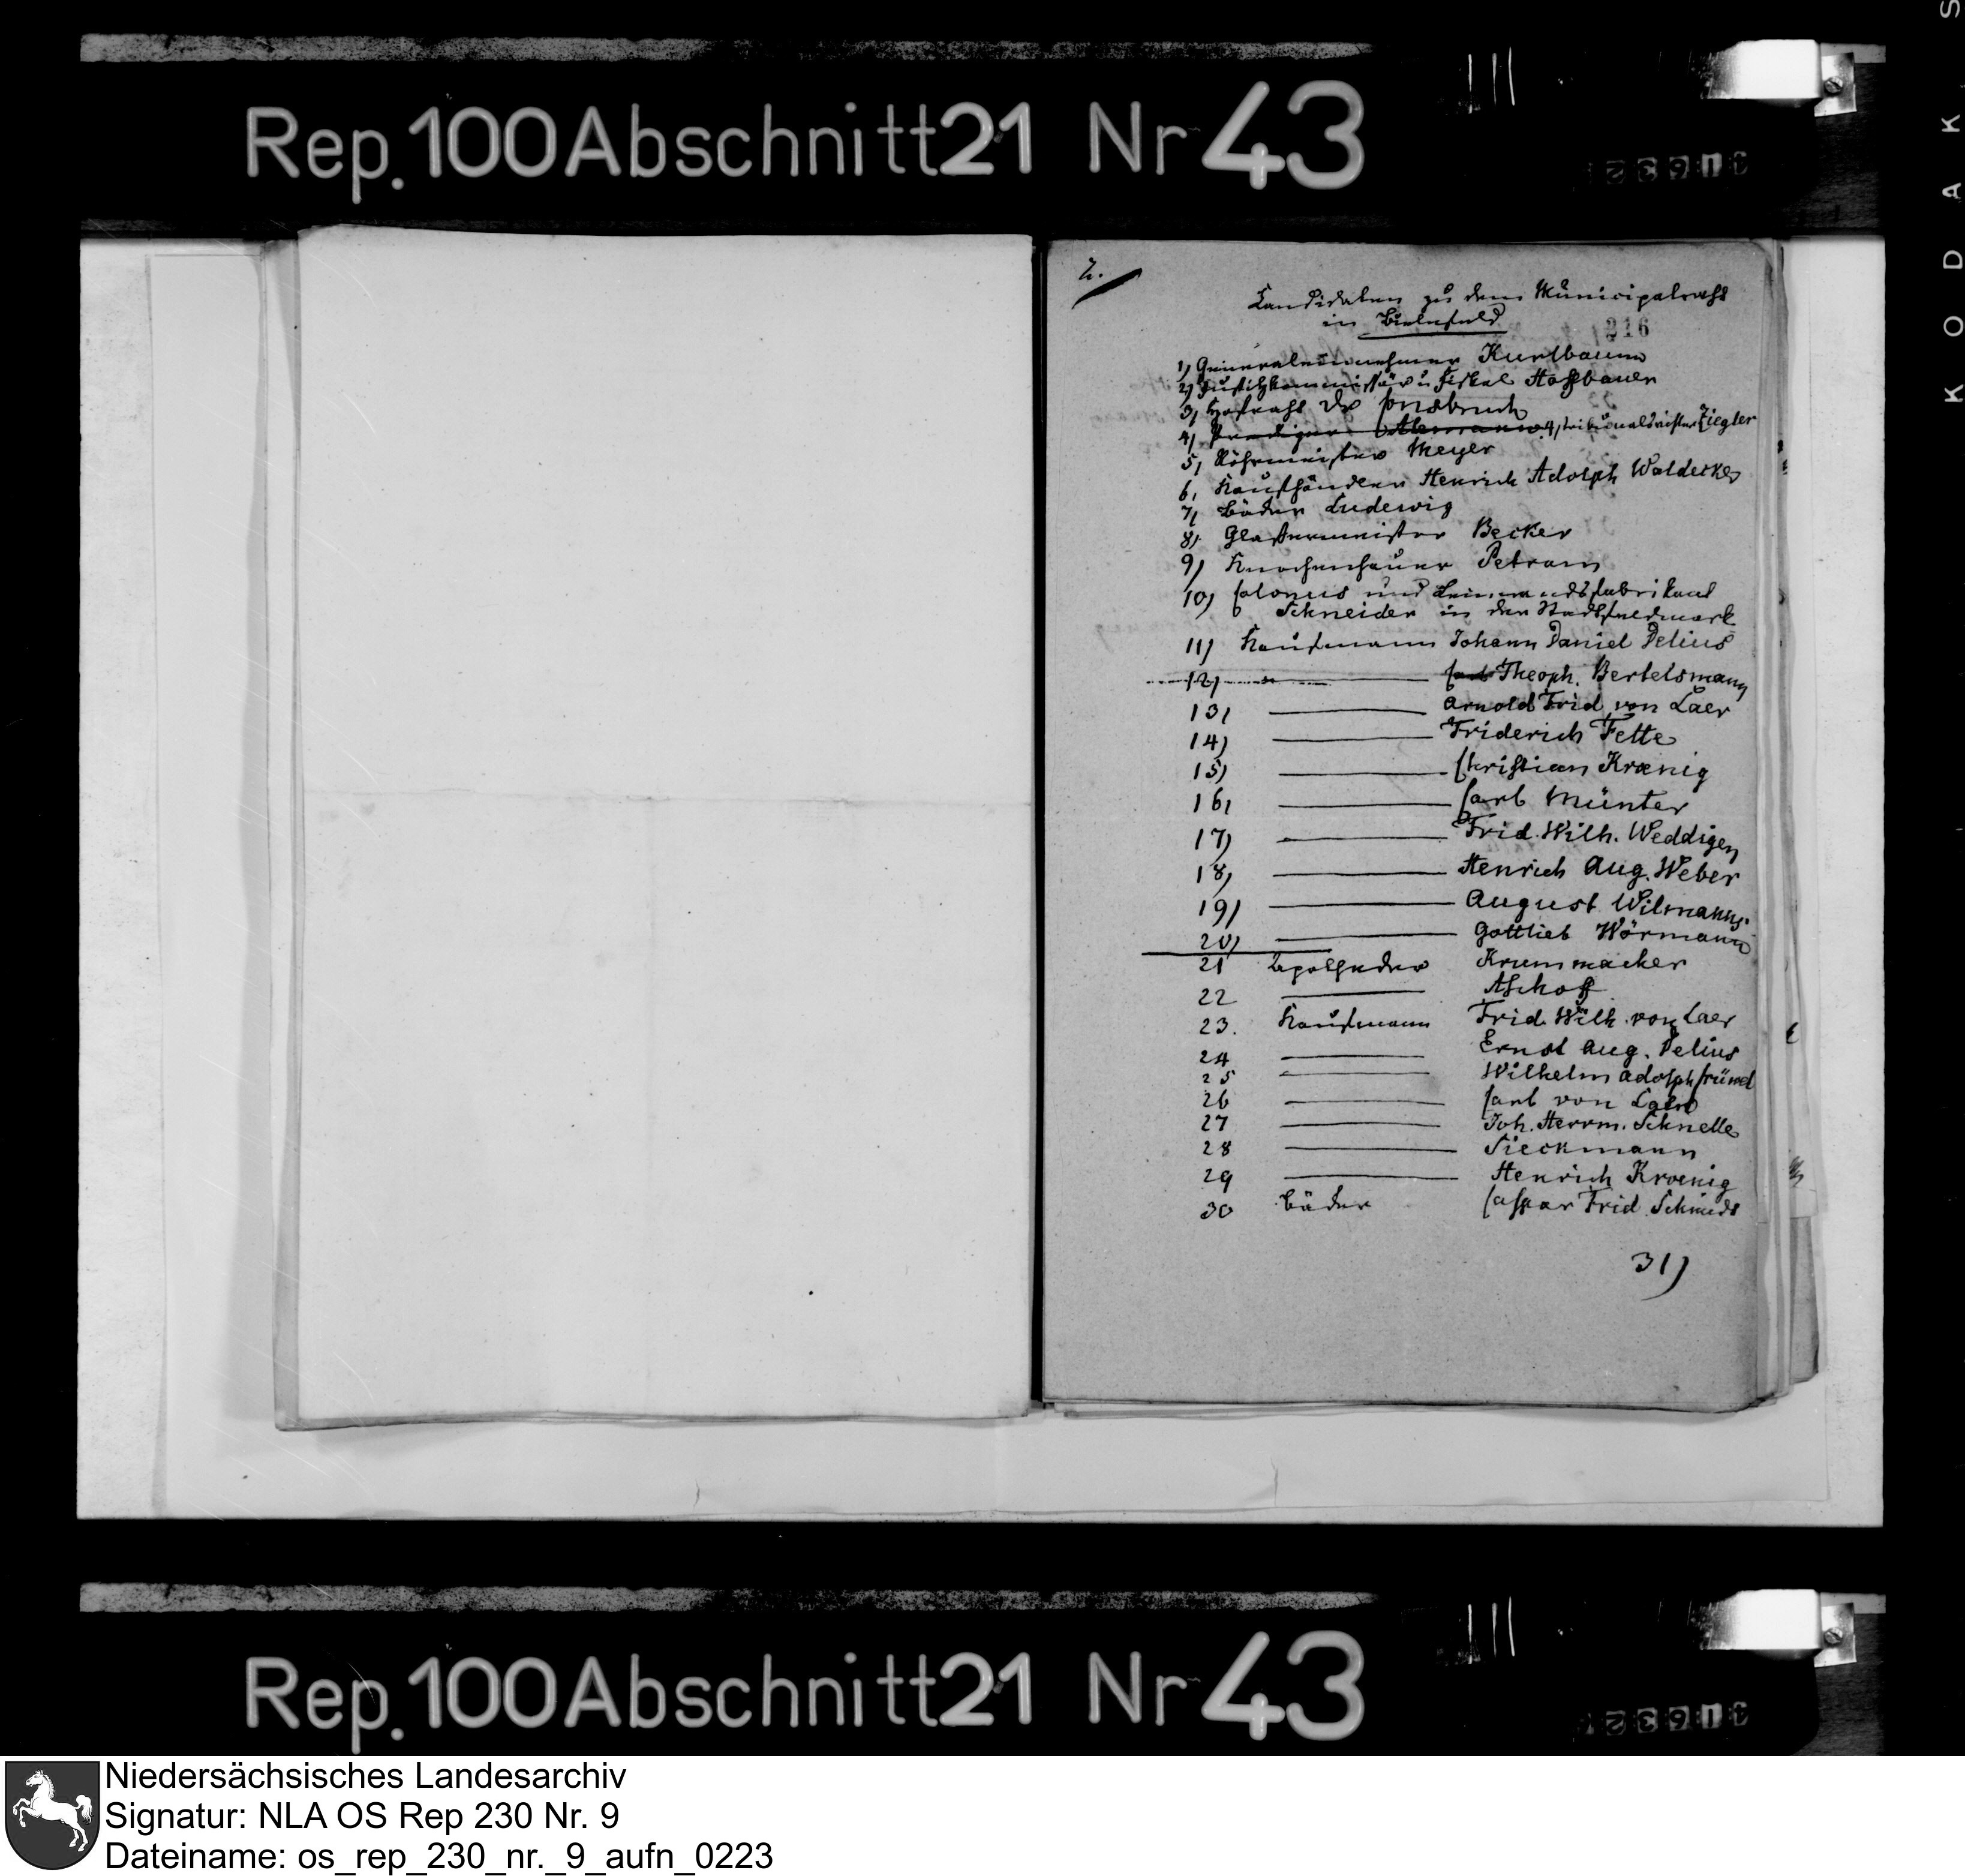 Rep. 100 Abschnitt 21 Nr 43
KODAK S
2.
Candidaten zu dem Municipalrath
in Bielefeld
216
1) Generaleinnehmer Kurlbaum
2) Justizkommissär u Fiskal Hoffbauer
3) Hofrath Dr Consbruch
4) Prediger 4) Tribunalsrichter Ziegler
5) Röhrmeister Meyer
6) Kaufhändler Henrich Adolph Waldecker
7) Bäcker Ludewig
8) Glasermeister Becker
9) Knochenhauer Petram
10) Colonus und Leinwandsfabrikant
Schneider in der Stadtfeldmark
11) Kaufmann Johann Daniel Delius
12) — Carl Theoph. Bertelsmann
13) — Arnold Frid von Laer
14) — Friderich Fette
15) — Christian Krœnig
16) — Carl Münter
17) — Frid. Wilh. Weddigen
18) — Henrich Aug. Weber
19) — August Wilmanns
20) — Gottlieb Wörmann
21 Apothecker Krummacher
22 — Aschoff
23. Kaufmann Frid. Wilh. von Laer
24 — Ernst Aug. Delius
25 — Wilhelm Adolph Crüwel
26 — Carl von Laer
27 — Joh. Herrm. Schnelle
28 — Sieckmann
29 — Henrich Kroenig
30 Bäcker Caspar Frid. Schmidt
31)
Rep. 100 Abschnitt 21 Nr 43
Niedersächsisches Landesarchiv
Signatur: NLA OS Rep 230 Nr. 9
Dateiname: os_rep_230_nr._9_aufn_0223